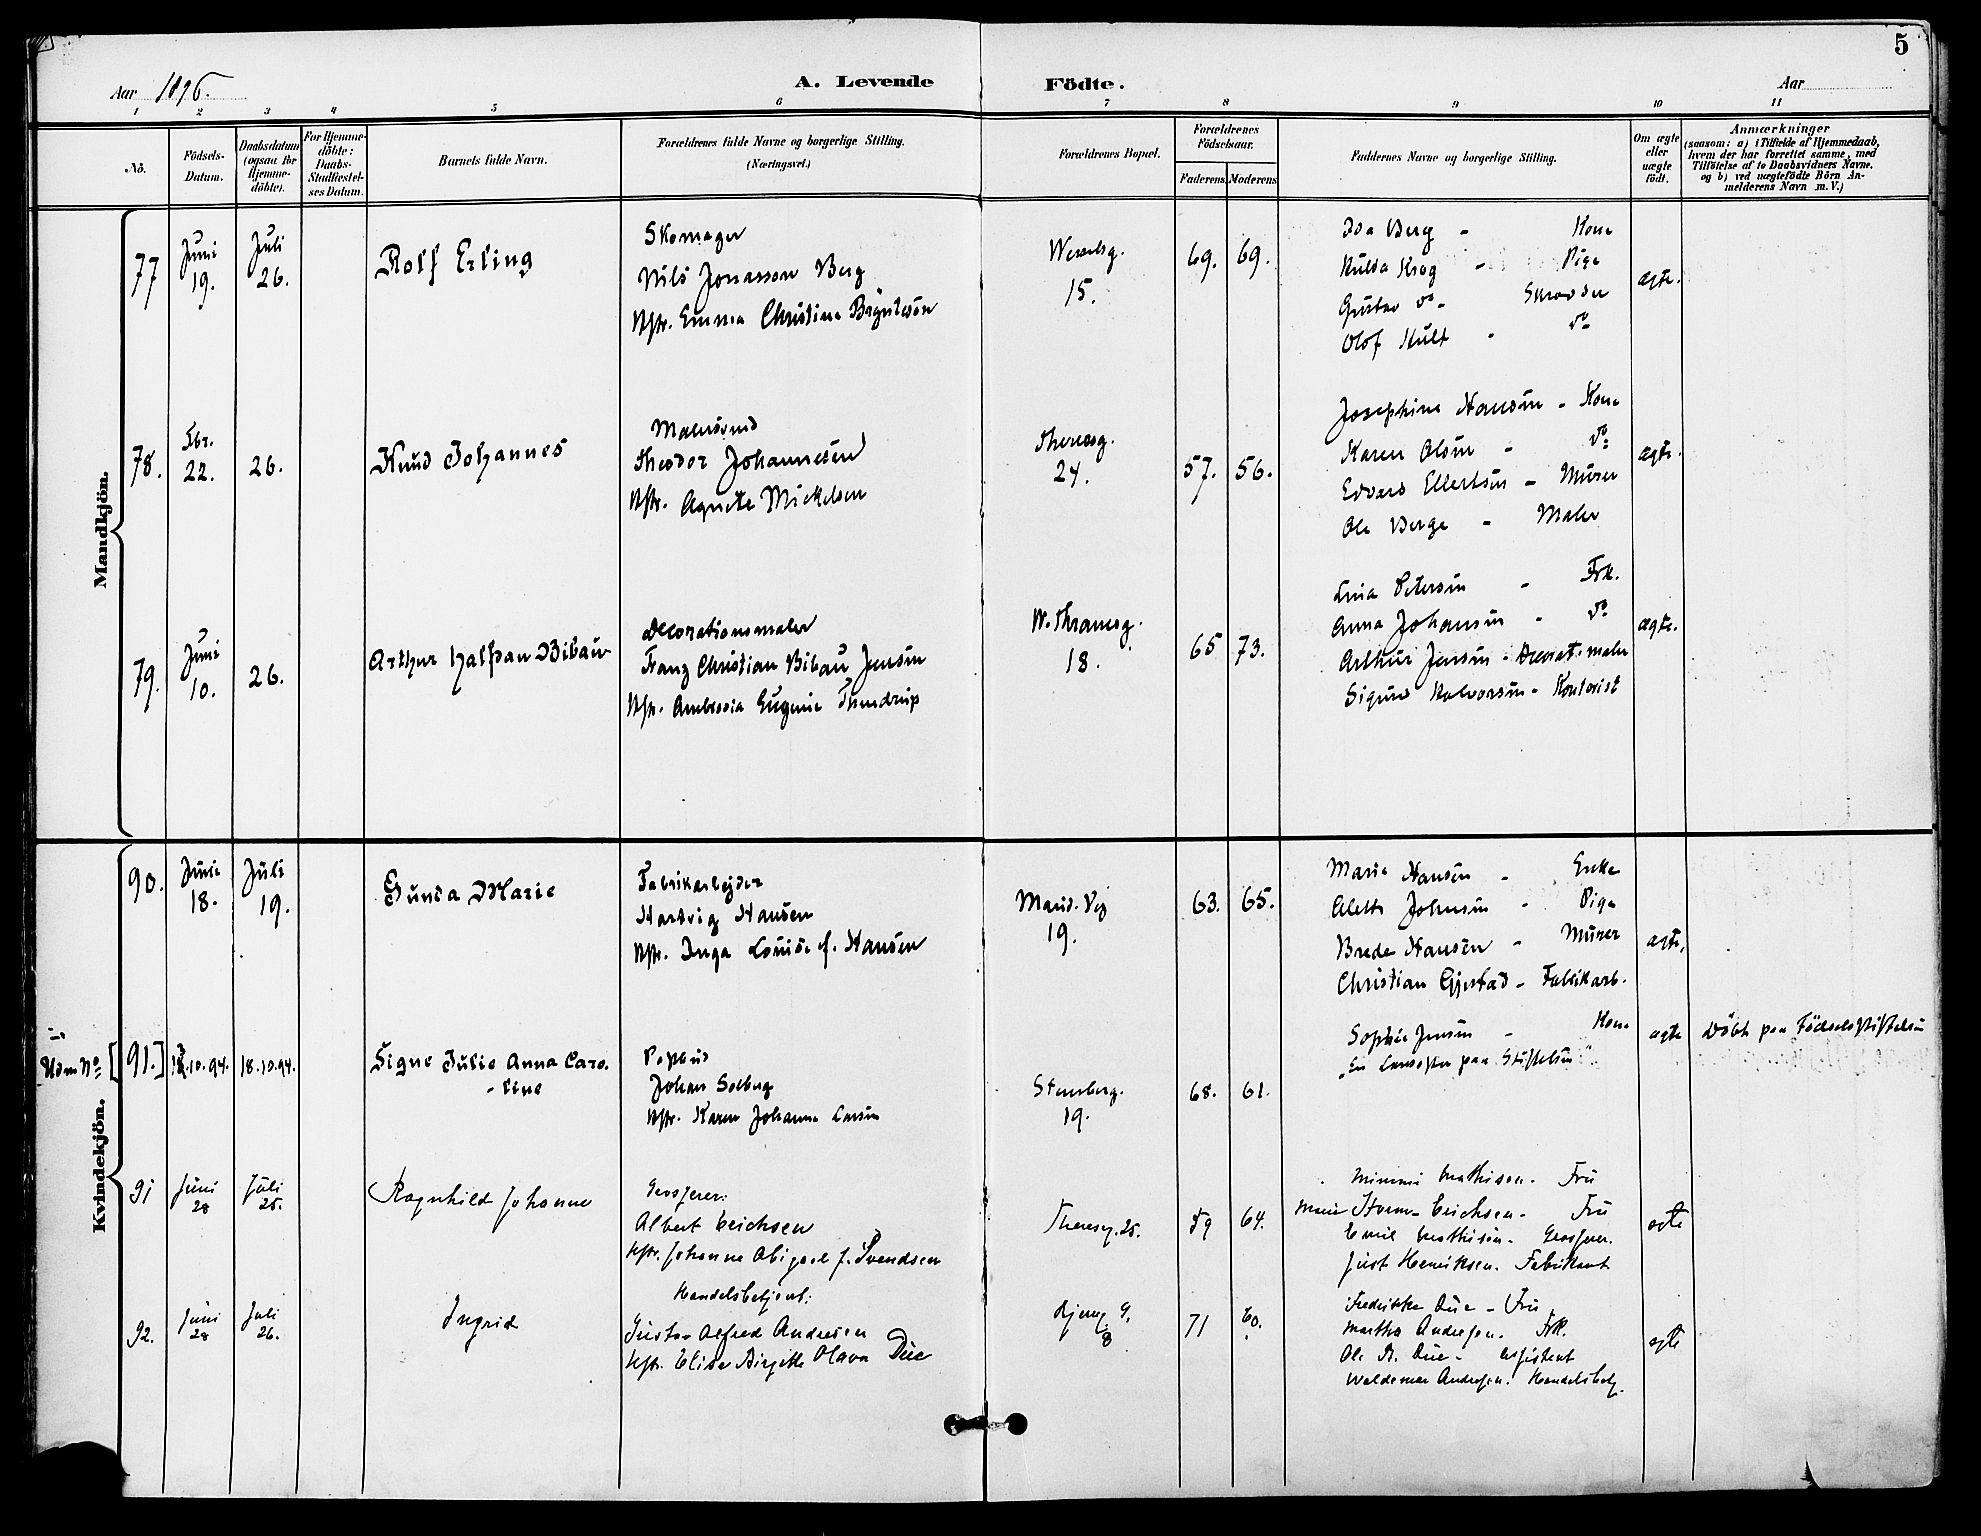 5
Aar 1896.
A. Levende Födte.
Aar
1 2 3 4 5 6 7 8 9 10 11
No.
Födsels-
Datum.
Daabsdatum
(ogsaa for
Hjemme-
döbte).
For Hjemme-
döbte:
Daabs-
Stadfæstel-
ses Datum.
Barnets fulde Navn.
Forældrenes fulde Navne og borgerlige Stilling.
(Næringsvei.)
Forældrenes Bopæl.
Forældrenes
Födselsaar.
Faderens. Moderens.
Faddernes Navne og borgerlige Stilling.
Om ægte
eller
uægte
födt.
Anmærkninger
(saasom: a) i Tilfælde af Hjemmedaab,
hvem der har forrettet samme, med
Tilföielse af to Daabsvidners Navne.
og b) ved uægtefödte Börn An-
melderens Navn m. V.)
Mandkjön.
77
Juni
19.
Juli
26.
Rolf Erling
Skomager
Nils Jonasson Berg
Hstr. Emma Christina
Wesselsg.
15.
69. 69.
Ida Berg - Kone
Hulda Krog - Pige
Gustav do - Skrædder
Olof Hult - do
ægte.
78.
22.
26.
Knud Johannes
Malersvend
Theodor Johannesen
Hstr. Agnete Mickelsen
Theresesg.
24.
57. 56.
Josephine Hansen - Kone
Karen Olsen - do
Edvard Ellertsen - Murer
Ole Berge - Maler
ægte.
79.
Juni
10.
26.
Arthur Halfdan Bibau
Decorationsmaler
Franz Christian Bibau Jensen
Hstr. Ambrosia Eugenie Thendrup
W. Thranesg.
18.
65 73.
Lina Petersen - Frk.
Anna Johansen - do
Arthur Jensen - Decorat.maler
Sigurd Halvorsen - Kontorist
ægte.
Kvindekjön.
90.
Juni
18.
Juli
19.
Gunda Marie
Fabrikarbejder
Hartvig Hansen
Hstr. Inga Louise f. Hansen
Marid. Vej
19.
63. 65.
Marie Hansen - Enke
Alette Johnsen - Pige
Brede Hansen - Murer
Christian Gjestad - Fabrikarb.
ægte.
[91.]
10.94.
18.10.94.
Signe Julie Anna Caro-
- line
Postbud
Johan Solberg
Hstr. Karen Johanna Larsen
Stensberg.
19.
68. 61.
Sophie Jensen - Kone
paa Stiftelsen"
ægte
Döbt paa Födselsstiftelsen
91
Juni
28
Juli
25.
Ragnhild Johanne
Grosserer:
Albert Erichsen
Hstr. Johanne Abigael f. Svendsen
Theresg. 25.
59 64.
Mimmi Mathisen - Fru
Marie Storm-Erichsen - Fru
Emil Mathisen - Grosserer.
Just Henriksen. Fabrikant
ægte
92.
Juni
28
Juli
26.
Ingrid
Handelsbetjent:
Gustav Alfred Andresen
Hstr. Elise Birgitte Olava Due
8
71 60.
Fredrikke Due - Fru
Martha Andresen. Frk.
Ole Due - Assistent
Waldemar Andresen. Handelsbetj.
ægte